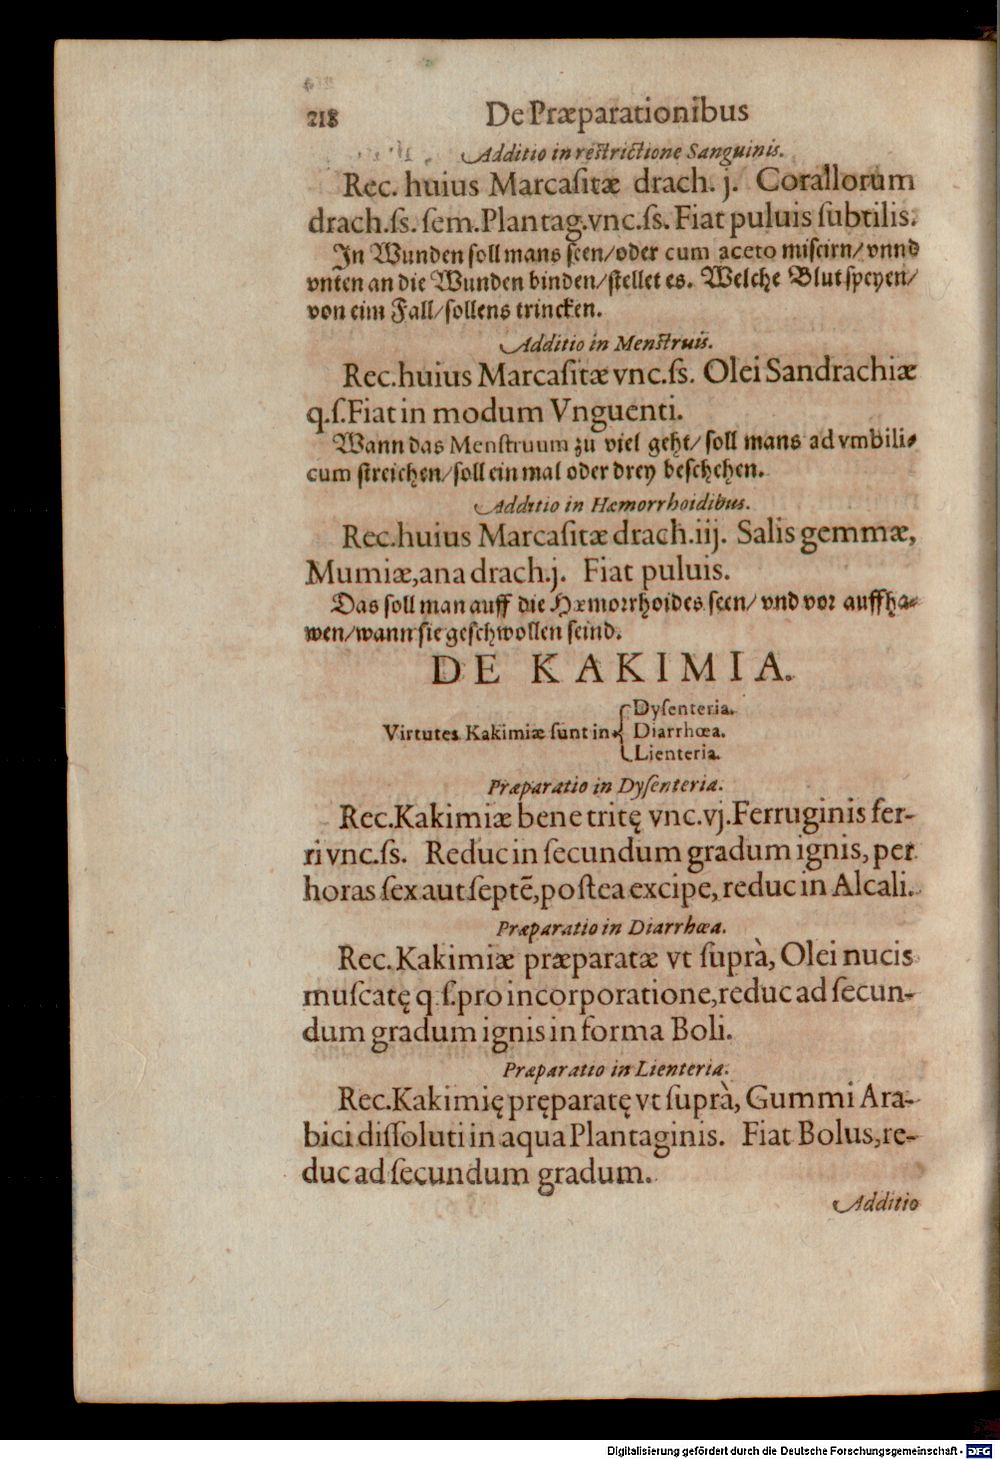 218 De Præparationibus
Additio in restrictione Sanguinis.
Rec. huius Marcasitæ drach. j. Corallorum
drach.ſs. ſem.Plantag.vnc.ſs. Fiat puluis ſubtilis.
In Wunden soll mans seen/oder cum aceto miscirn/vnnd
vnten an die Wunden binden/stellet es. Welche Blut speyen/
von eim Fall/sollens trincken.
Additio in Menstruis.
Rec.huius Marcaſitæ vnc.ſs. Olei Sandrachiæ
q.ſ.Fiat in modum Vnguenti.
Wann das Menstruum zu viel geht/soll mans ad vmbili-
cum streichen/soll ein mal oder drey beschehen.
Additio in Hæmorrhoidibus.
Rec.huius Marcaſitæ drach.iij. Salis gemmæ,
Mumiæ,ana drach.j. Fiat puluis.
Das soll man auff die Hæmorrhoides seen/vnd vor auffha-
wen/wann sie geschwollen seind.
DE KAKIMIA.
Dyſenteria.
Virtutes Kakimiæ ſunt in Diarrhœa.
Lienteria.
Præparatio in Dyſenteria.
Rec.Kakimiæ bene tritę vnc.vj.Ferruginis fer-
ri vnc.ſs. Reduc in ſecundum gradum ignis, per
horas ſex aut ſeptē,poſtea excipe, reduc in Alcali.
Præparatio in Diarrhœa.
Rec. Kakimiæ præparatæ vt ſuprà, Olei nucis
muſcatę q.ſ.pro incorporatione,reduc ad ſecun-
dum gradum ignis in forma Boli.
Præparatio in Lienteria.
Rec.Kakimię pręparatę vt ſuprà, Gummi Ara-
bici diſſoluti in aqua Plantaginis. Fiat Bolus,re-
duc ad ſecundum gradum.
Additio
Digitalisierung gefördert durch die Deutsche Forschungsgemeinschaft - DFG